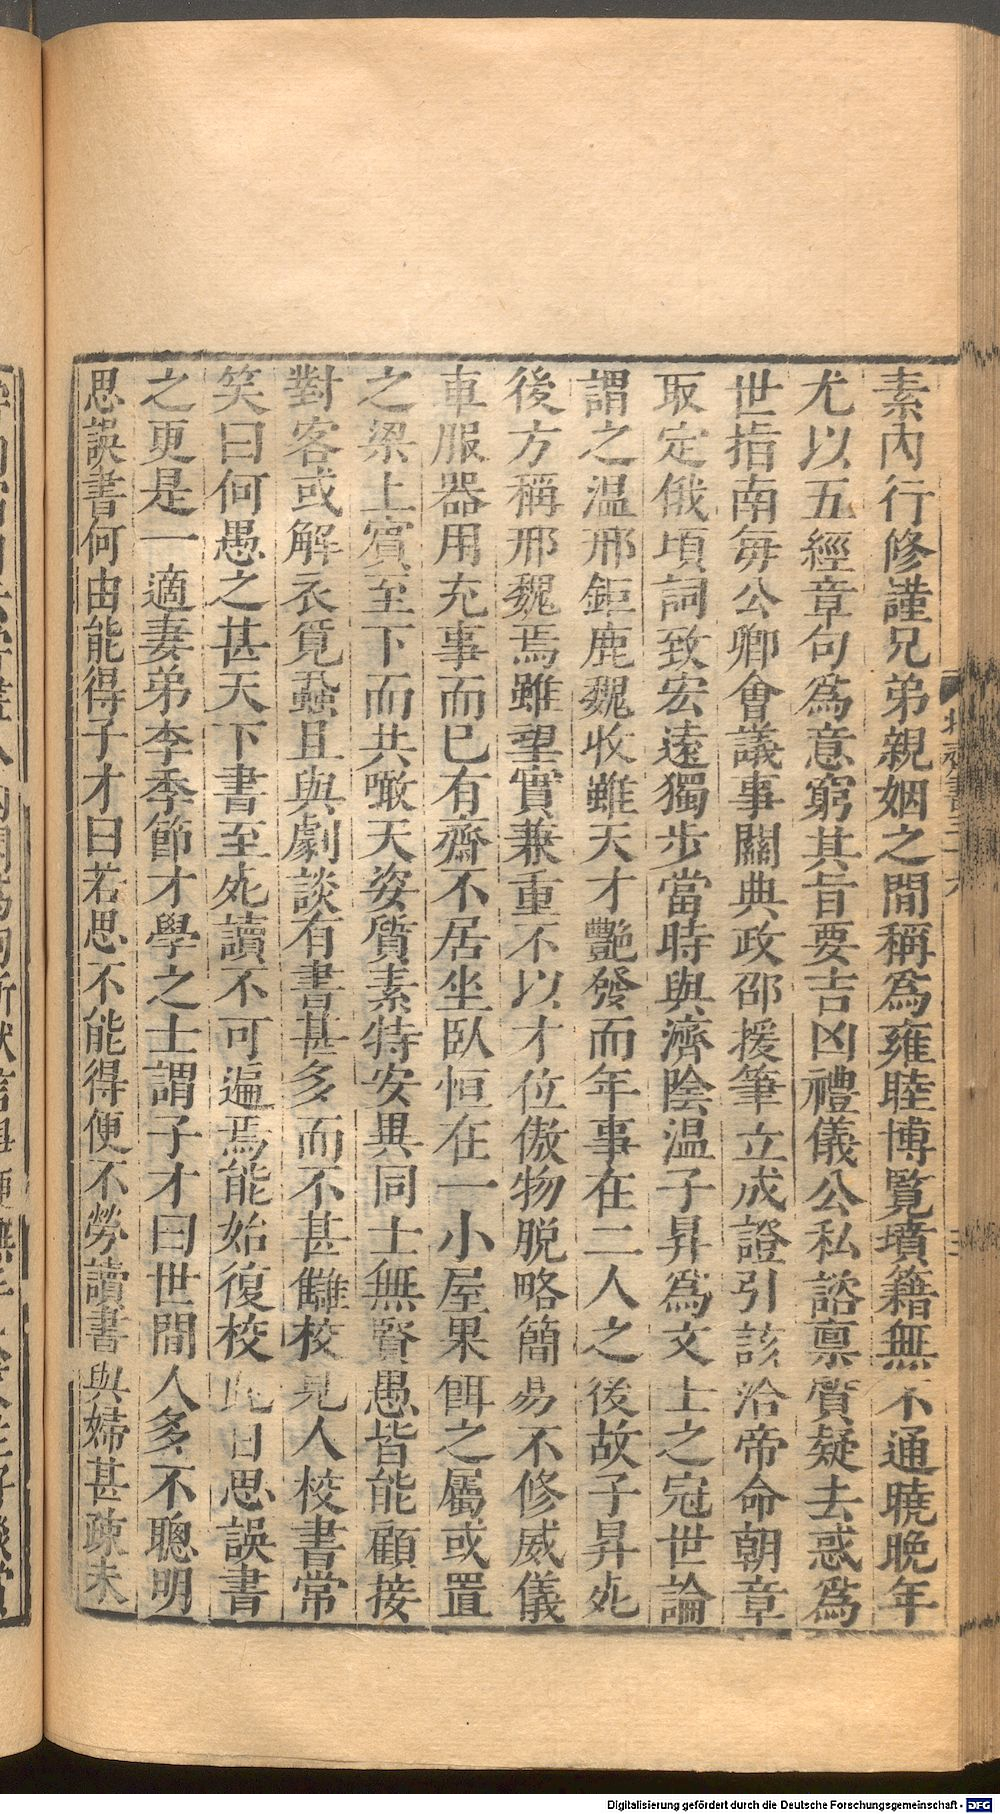 素內行修謹兄弟親姻之間稱爲雍睦博覽墳籍無不通曉晚年
尤以五經章句爲意窮其旨要吉凶禮儀公私諮禀質疑去惑爲
世指南每公卿會議事關典政邵援筆立成證引該洽帝命朝章
取定俄頃詞致宏遠獨步當時與濟陰温子昇爲文士之冠世論
謂之温邢鉅鹿魏收雖天才豔發而年事在二人之後故子昇死
後方稱邢魏焉雖望實兼重不以才位傲物脫略簡易不修威儀
車服器用充事而已有齋不居坐臥恒在一小屋果餌之屬或置
之梁上賓至下而共噉天姿質素特安異同士無賢愚皆能顧接
對客或解衣覓蝨且與劇談有書甚多而不甚讎校見人校書常
笑曰何愚之甚天下書至死讀不可遍焉能始復校此日思誤書
之更是一適妻弟李季節才學之士謂子才曰世間人多不聰明
思誤書何由能得子才曰若思不能得便不勞讀書與婦甚疎未
Digitalisierung gefördert durch die Deutsche Forschungsgemeinschaft - DFG